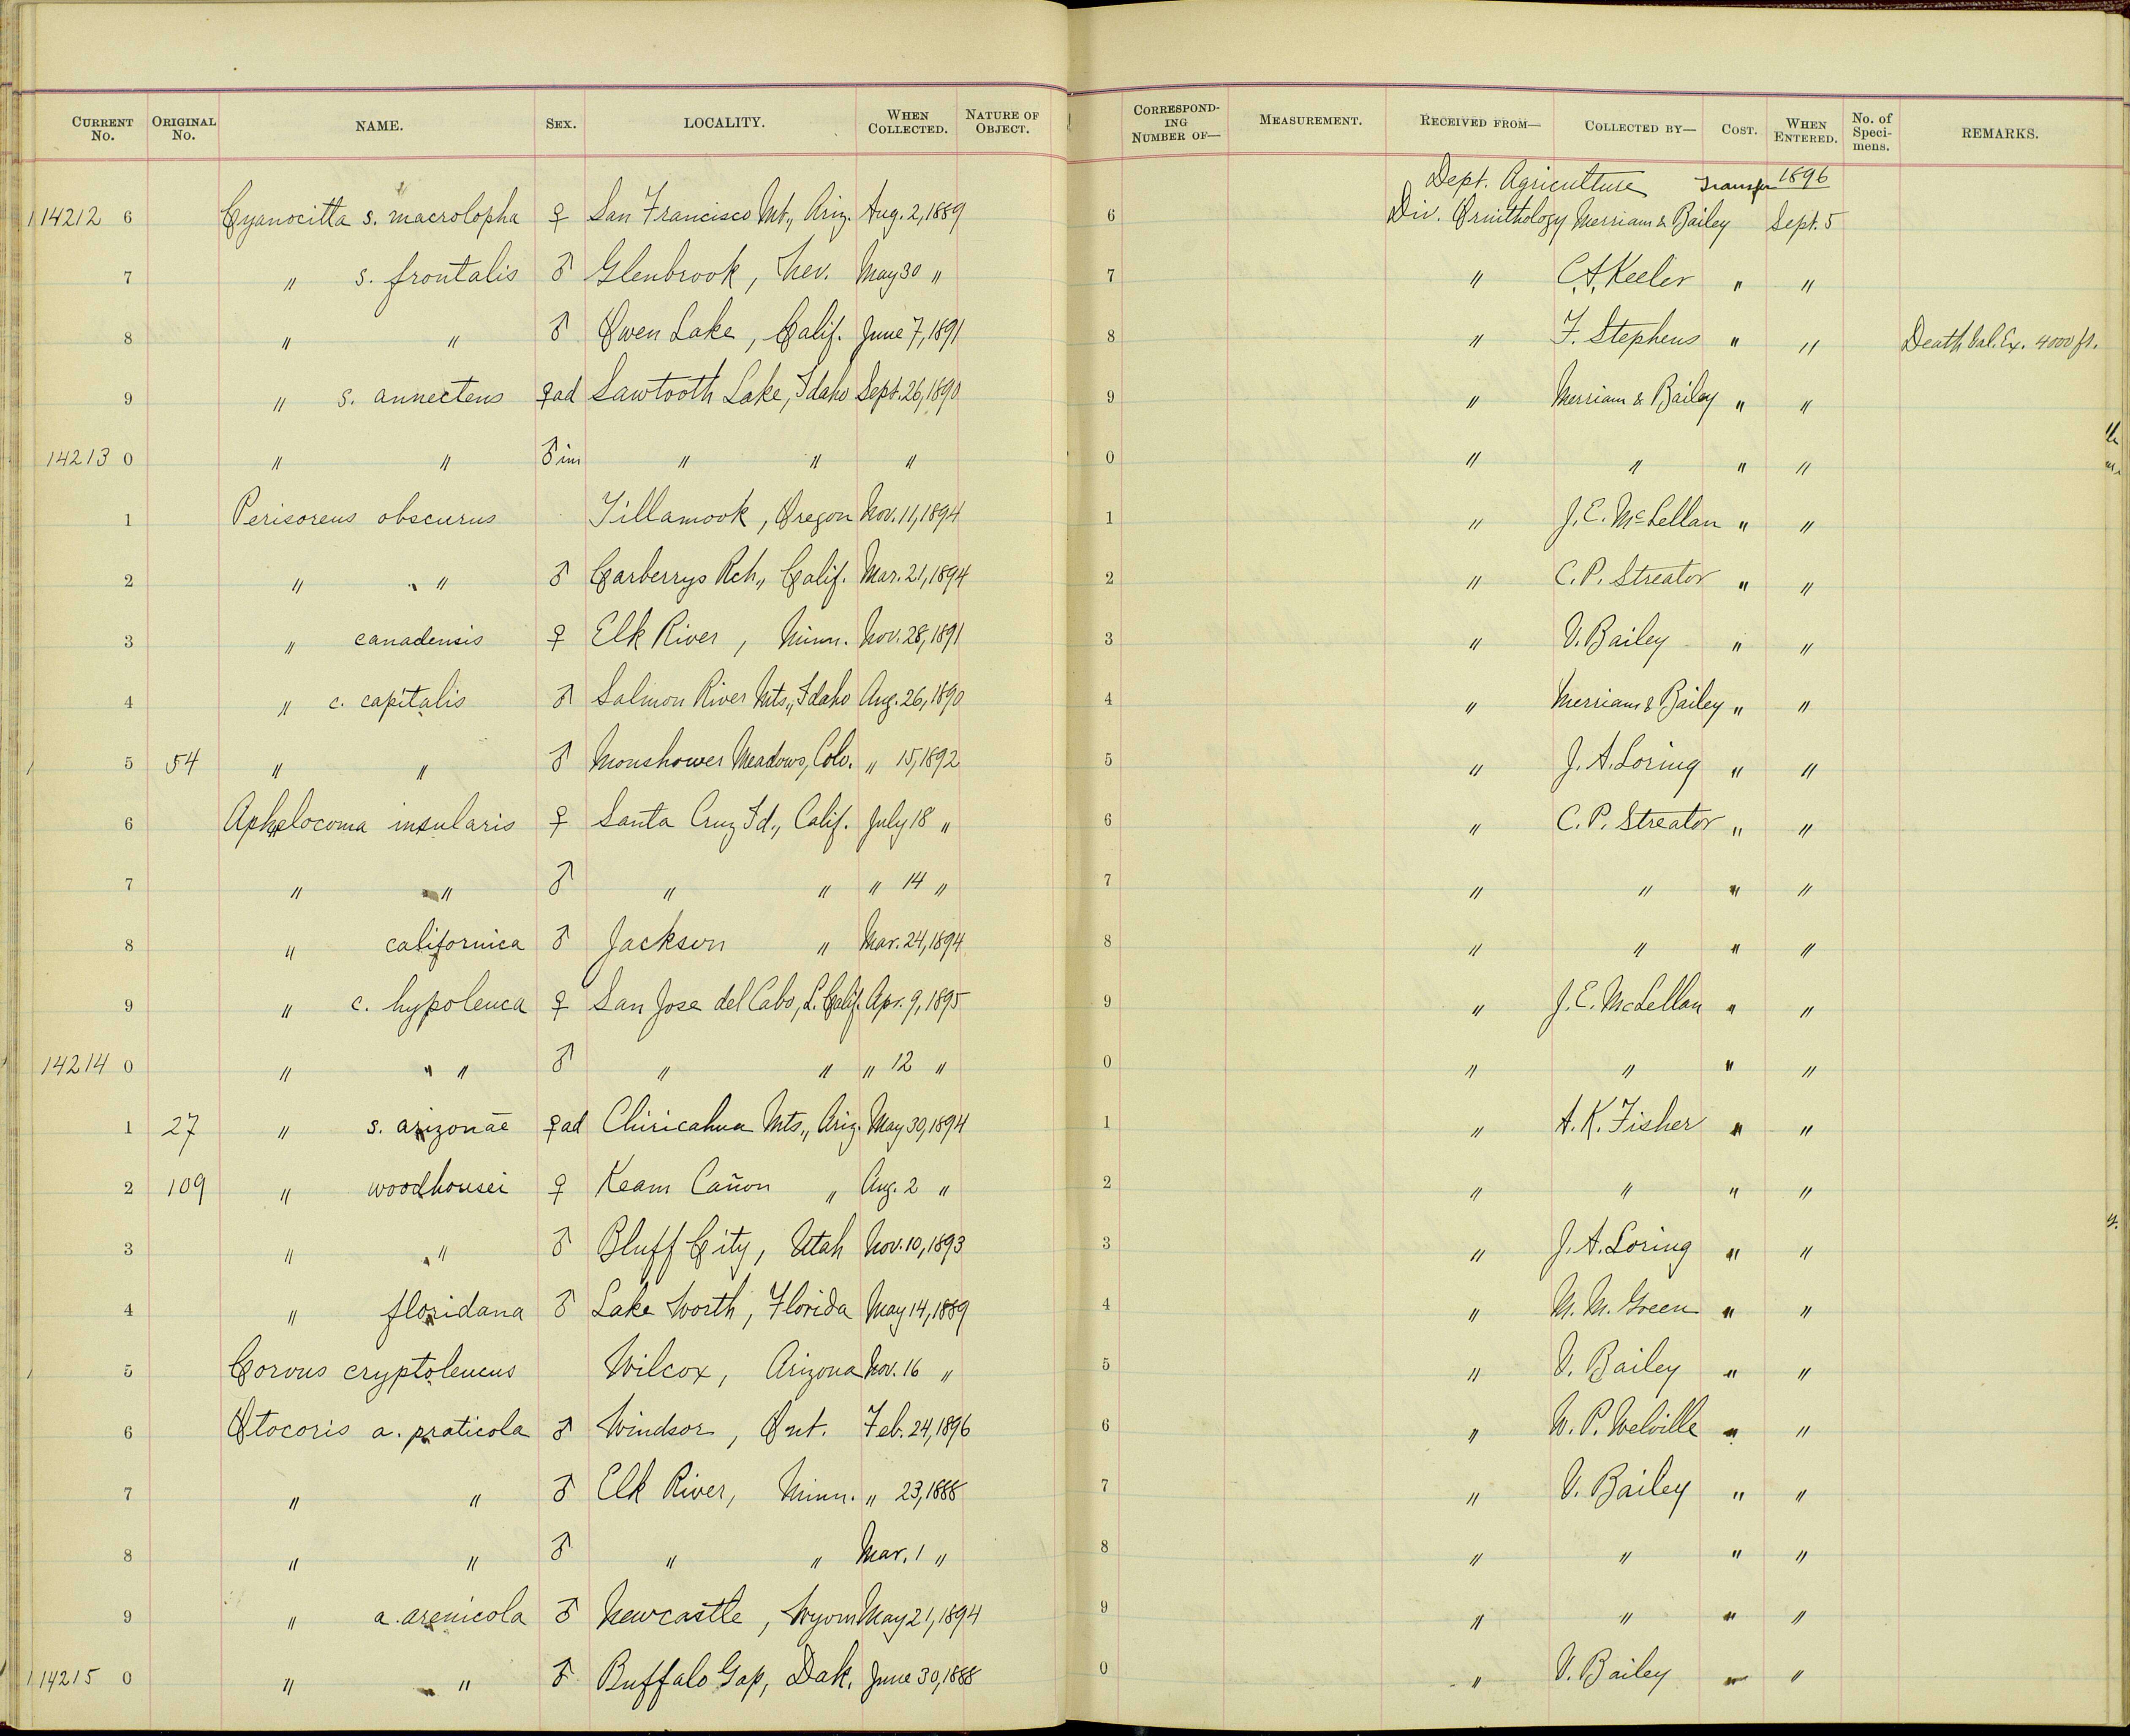 CURRENT No. ORIGINAL No. NAME. SEX. LOCALITY. WHEN COLLECTED. NATURE OF OBJECT. CORRESPONDING NUMBER OF— MEASUREMENT. RECEIVED FROM— COLLECTED BY— COST. WHEN ENTERED. No. of Specimens. REMARKS.
Dept. Agriculture Transfer 1896
114212 6 Cyanocitta s. macrolopha ♀ San Francisco Mt., Ariz. Aug. 2, 1889 6 Div. Ornithology Merriam & Bailey Sept. 5
7 " s. frontalis ♂ Glenbrook, Nev. May 30 " 7 " C.A. Keeler " "
8 " " ♂ Owen Lake, Calif. June 7, 1891 8 " F. Stephens " " Death Val. Ex. 4000 ft.
9 " s. annectens ♀ad Sawtooth Lake, Idaho Sept. 26, 1890 9 " Merriam & Bailey " "
14213 0 " " ♂ im " " " 0 " " " "
1 Perisoreus obscurus Tillamook, Oregon Nov. 11, 1894 1 " J. E. McLellan " "
2 " " ♂ Carberrys Rch., Calif. Mar. 21, 1894 2 " C. P. Streator " "
3 " canadensis ♀ Elk River, Minn. Nov. 28, 1891 3 " V. Bailey " "
4 " c. capitalis ♂ Salmon River Mts., Idaho Aug. 26, 1890 4 " Merriam & Bailey " "
5 54 " " ♂ Monshower Meadows, Colo. " 15, 1892 5 " J. A. Loring " "
6 Aphelocoma insularis ♀ Santa Cruz Id., Calif. July 18 " 6 " C. P. Streator " "
7 " " ♂ " " " 14 " 7 " " " "
8 " californica ♂ Jackson " Mar. 24, 1894 8 " " " "
9 " c. hypoleuca ♀ San Jose del Cabo, L. Calif. Apr. 9, 1895 9 " J. E. McLellan " "
14214 0 " " " ♂ " " " 12 " 0 " " " "
1 27 " s. arizonae ♀ad Chiricahua Mts., Ariz. May 30, 1894 1 " A. K. Fisher " "
2 109 " woodhousei ♀ Keam Cañon " Aug. 2 " 2 " " " "
3 " " ♂ Bluff City, Utah Nov. 10, 1893 3 " J. A. Loring " "
4 " floridana ♂ Lake Worth, Florida May 14, 1889 4 " M. M. Green " "
5 Corvus cryptoleucus Wilcox, Arizona Nov. 16 " 5 " V. Bailey " "
6 Otocoris a. praticola ♂ Windsor, Ont. Feb. 24, 1896 6 " W. P. Melville " "
7 " " ♂ Elk River, Minn. " 23, 1888 7 " V. Bailey " "
8 " " ♂ " " Mar. 1 " 8 " " " "
9 " a. arenicola ♂ Newcastle, Wyom May 21, 1894 9 " " " "
114215 0 " " ♂ Buffalo Gap, Dak. June 30, 1888 0 " V. Bailey " "